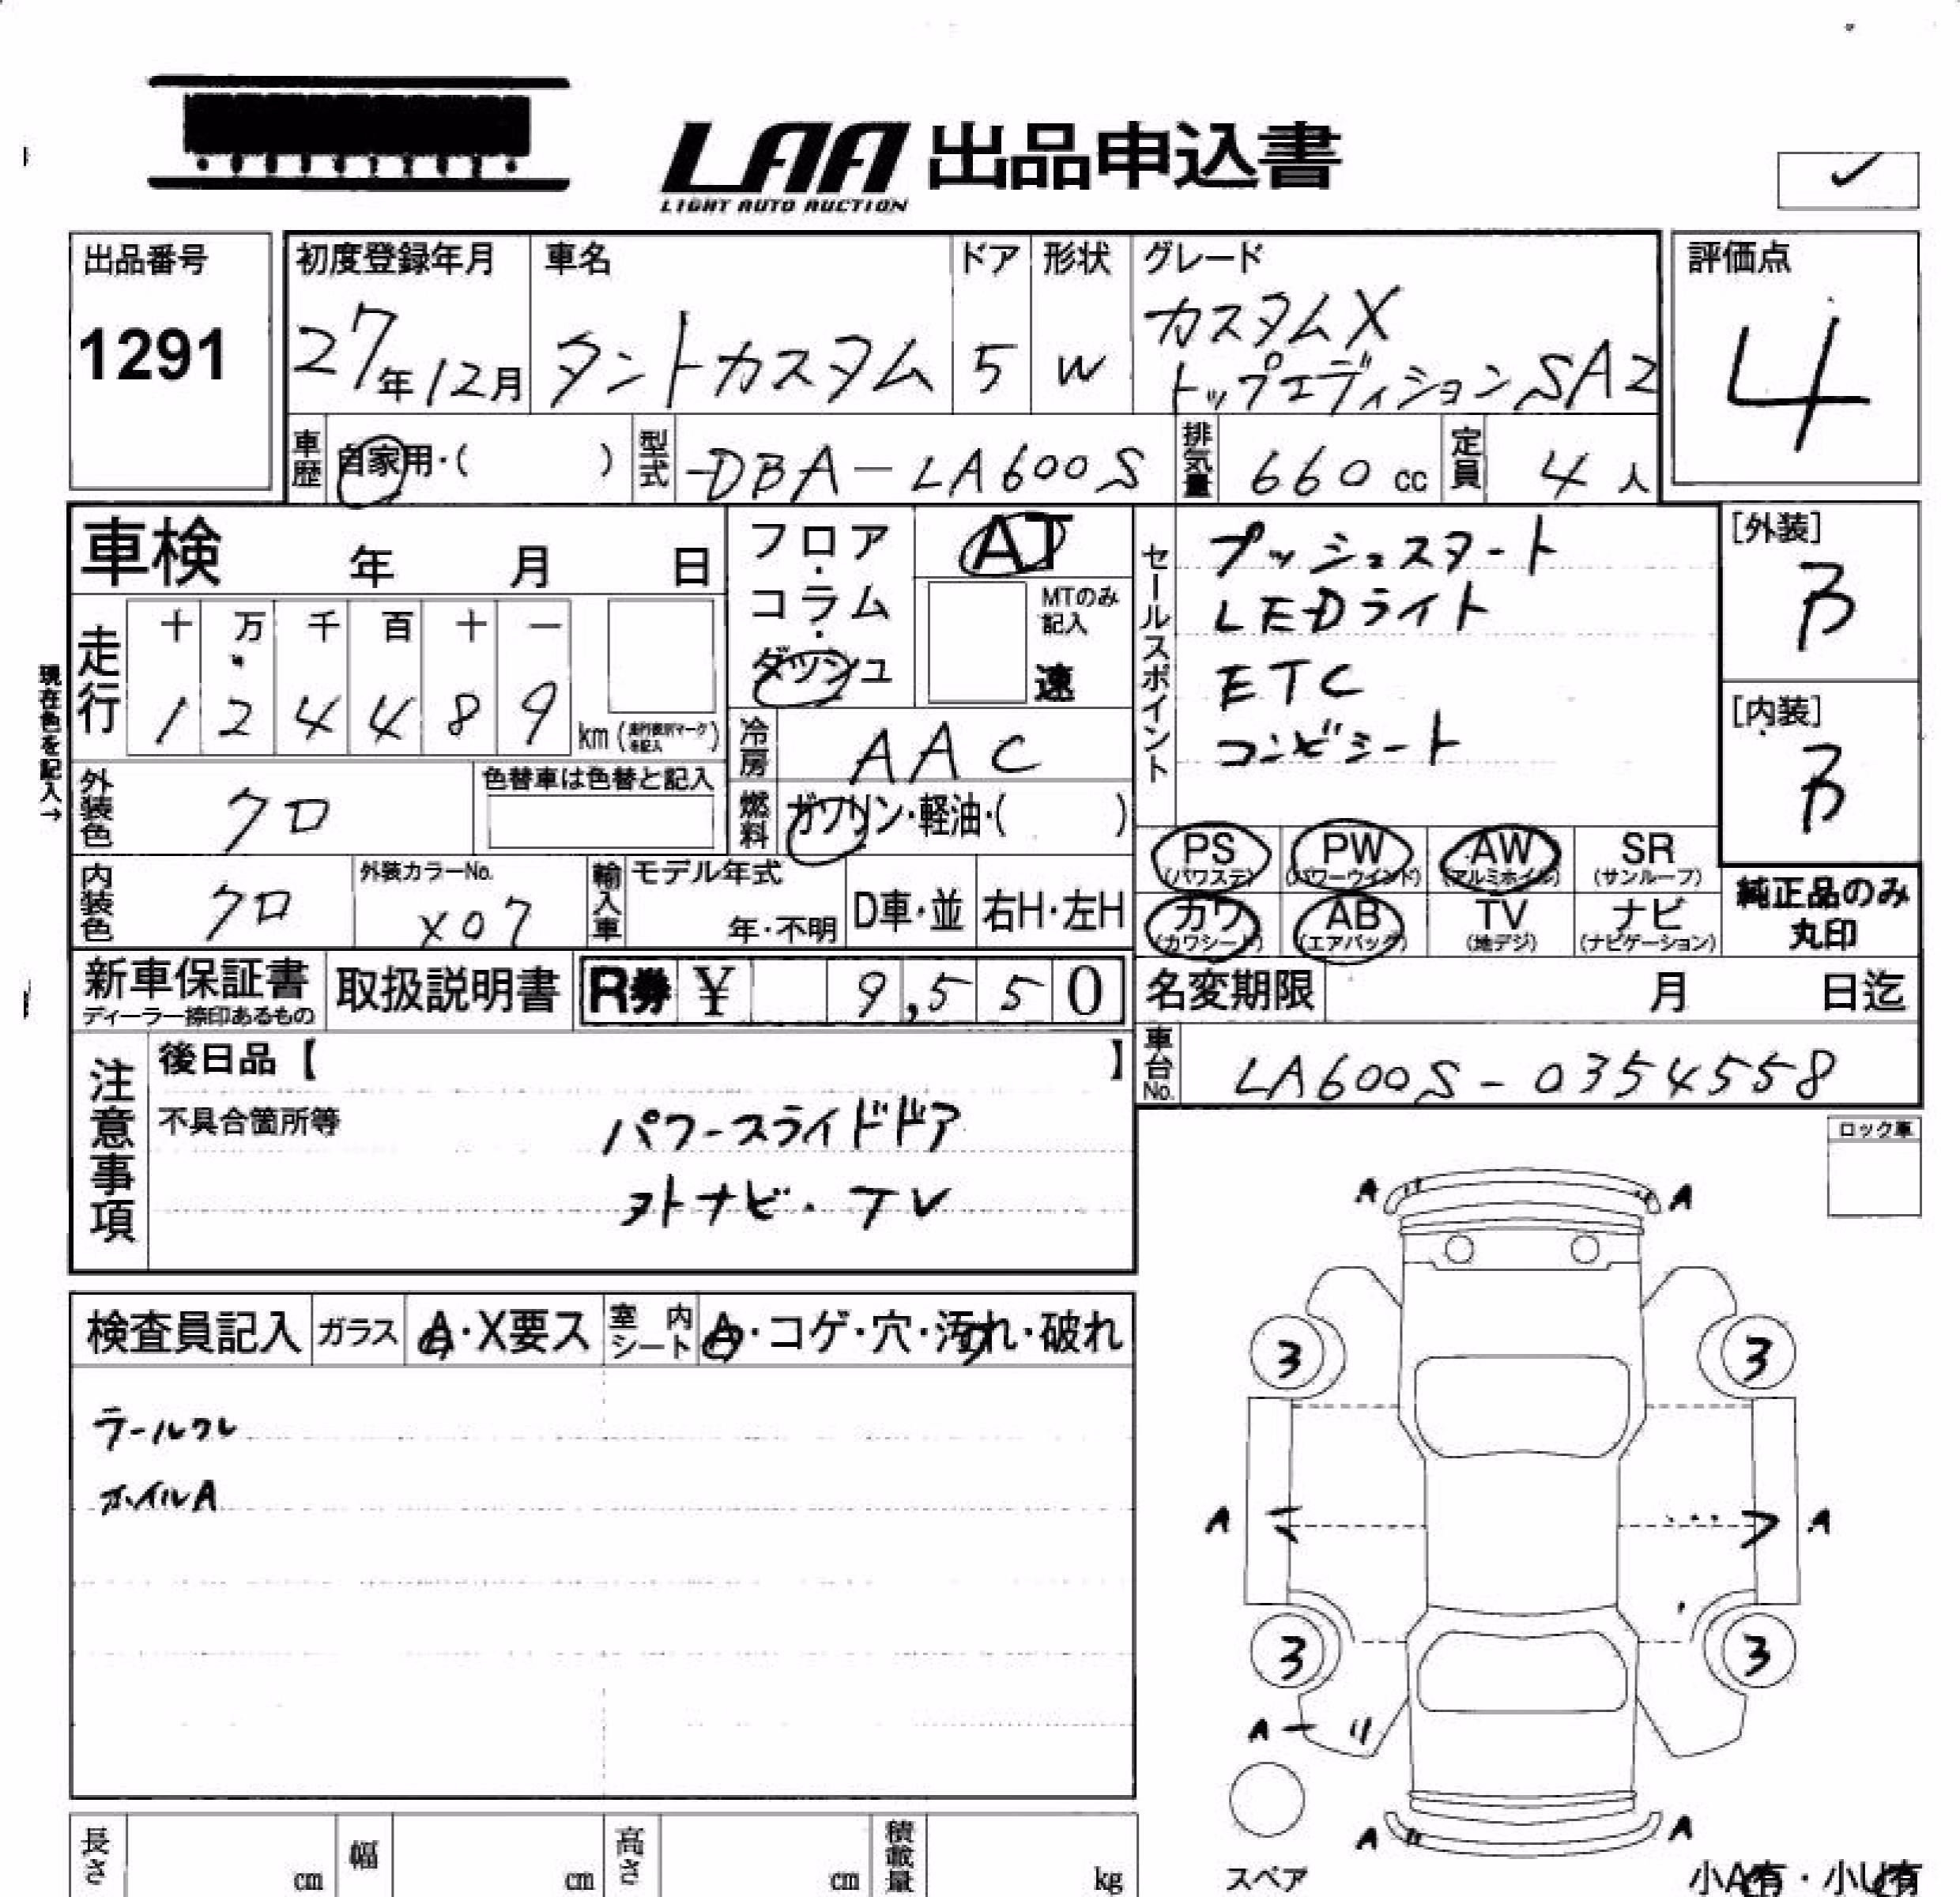 LAA 出品申込書
LIGHT AUTO AUCTION
出品番号
1291
初度登録年月
27年12月
車名
タントカスタム
ドア
5
形状
W
グレード
カスタムX
トップエディションSA2
評価点
4
車歴
自家用・( )
型式
DBA-LA600S
排気量
660 cc
定員
4 人
車検 年 月 日
走行
十 万 千 百 十 一
1 2 4 4 8 9 km
現在色を記入→
外装色
クロ
色替車は色替と記入
内装色
クロ
外装カラーNo.
X07
フロア・コラム・ダッシュ
AT
MTのみ記入
速
冷房
AAC
燃料
ガソリン・軽油・( )
輸入車
モデル年式
年・不明
D車・並
右H・左H
セールスポイント
プッシュスタート
LEDライト
ETC
コンビシート
[外装]
B
[内装]
B
PS (パワステ)
PW (パワーウインド)
AW (アルミホイル)
SR (サンルーフ)
カワ (カワシート)
AB (エアバッグ)
TV (地デジ)
ナビ (ナビゲーション)
純正品のみ
丸印
新車保証書
ディーラー捺印あるもの
取扱説明書
R券 ¥ 9,550
名変期限 月 日迄
車台No.
LA600S-0354558
注意事項
後日品【 】
不具合箇所等
パワースライドドア
ナビ・TV
ロック車
検査員記入
ガラス
A・X要ス
室内シート
A・コゲ・穴・汚れ・破れ
ホイルA
A A
3 3
A A
3 3
A
A A
スペア
小A有・小U有
長さ cm
幅 cm
高さ cm
積載量 kg